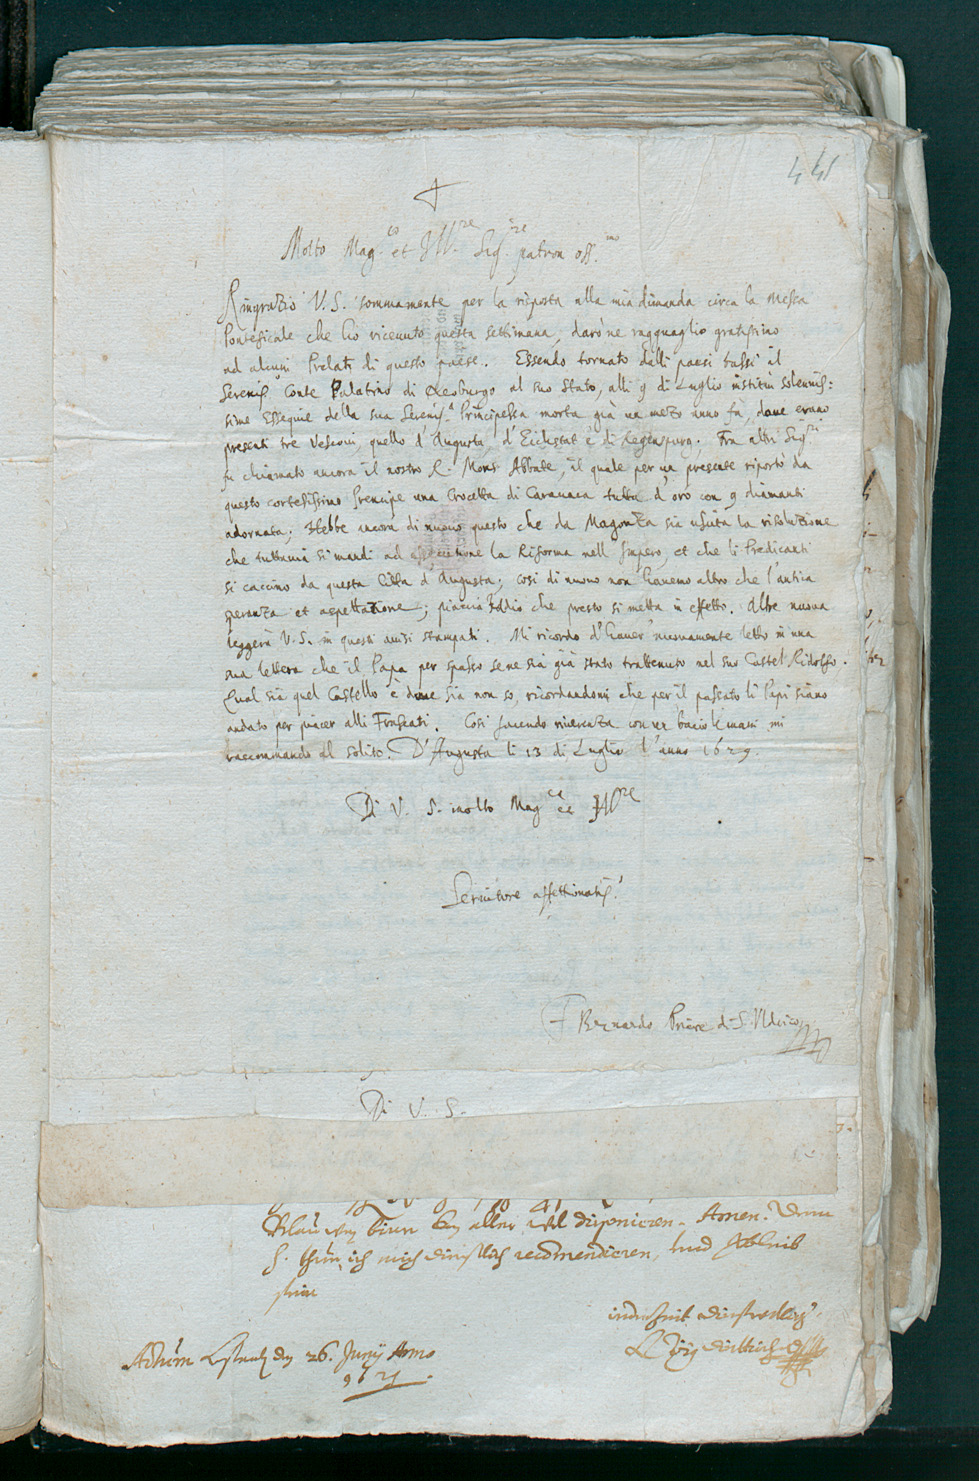 441
Molto Mag.co et Ill.re Sig.re patron oss.mo
Ringratio V. S. sommamente per la risposta alla mia dimanda circa la Messa
Pontificale che hò ricevuto questa settimana, darò ne ragguaglio gratissimo
ad alcuni Prelati di questo paese. Essendo tornato dalli paesi bassi il
Sereniss.o Conte Palatino di Neoburgo al suo Stato, alli 9 di Luglio institui solennis:
sime Essequie della sua Sereniss.a Principessa morta già un mezo anno fù, dove erano
presenti tre Vescovi, quello d'Augusta, d'Eichstat e di Regenspurg. Fra altri Sig.ri
fu chiamato ancora il nostro R. Mons. Abbate, il quale per un presente riportò da
questo cortesissimo Prencipe una Crocetta di Caravaca tutta d'oro con 9 diamanti
adornata; Hebbe ancora di nuovo questo che da Magonza sia uscita la risolutione
che tuttavia si mandi ad essecutione la Riforma nell Impero, et che li Predicanti
si caccino da questa Citta d'Augusta; cosi di nuovo non havemo altro che l'antica
speranza et aspettatione; piaccia Iddio che presto si metta in effetto. Altre nuova
leggerà V. S. in questi avisi stampati. Mi ricordo d'haver nuovamente letto in una
sua lettera che il Papa per spasso se ne sia già stato trattenuto nel suo Castel Ridolfo.
Qual sia quel Castello e dove sia non so, ricordandomi che per il passato li Papi siano
andato per piacer alli Frascati. Cosi facendo riverenza con un bacio le mani mi
raccommando al solito. D'Augusta li 13 di Luglio l'anno 1629.
Di V. S. molto Mag.ca et Ill.re
Servitore affettionatis.o
F Bernardo Priore di S. Udrico
Di V. S.
aller disponieren. Amen.
ich mich dienstlich recomendieren, und
den 26. Junij Anno